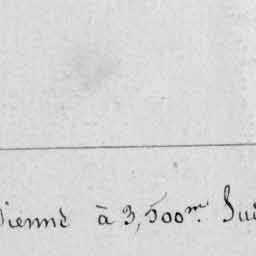 Vienne à 3,500m. Sui